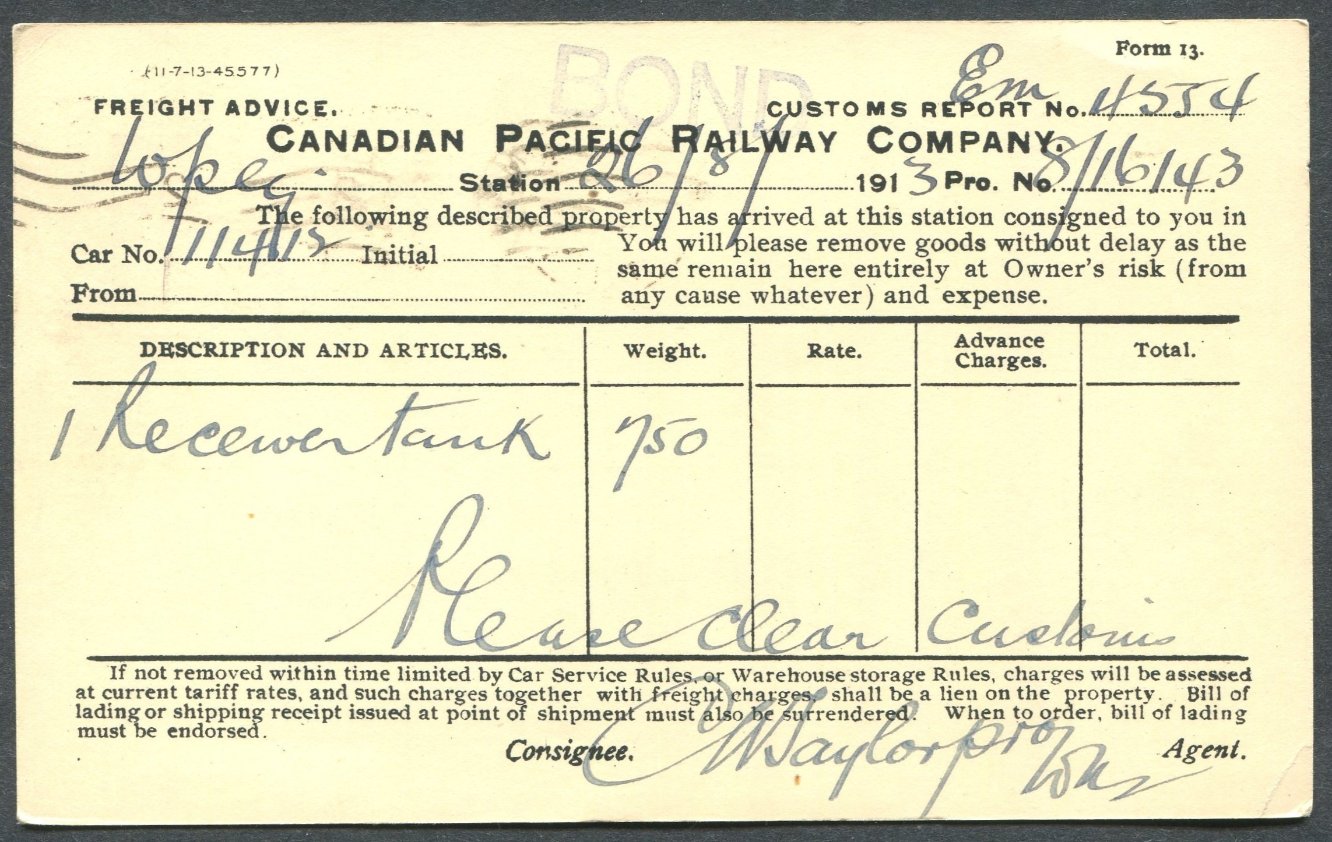 Form 13.
(11-7-13-45577)
BOND
FREIGHT ADVICE. CUSTOMS REPORT No. Em 4554
CANADIAN PACIFIC RAILWAY COMPANY.
Wpeg. Station 26/8/ 1913 Pro. No. 8/16143
The following described property has arrived at this station consigned to you in
Car No. 114113 Initial
You will please remove goods without delay as the
same remain here entirely at Owner's risk (from
From
any cause whatever) and expense.
DESCRIPTION AND ARTICLES. Weight. Rate. Advance Charges. Total.
1 Receiver tank 750
Please clear Customs
If not removed within time limited by Car Service Rules, or Warehouse storage Rules, charges will be assessed
at current tariff rates, and such charges together with freight charges, shall be a lien on the property. Bill of
lading or shipping receipt issued at point of shipment must also be surrendered. When to order, bill of lading
must be endorsed.
Consignee. Taylor pro Agent.